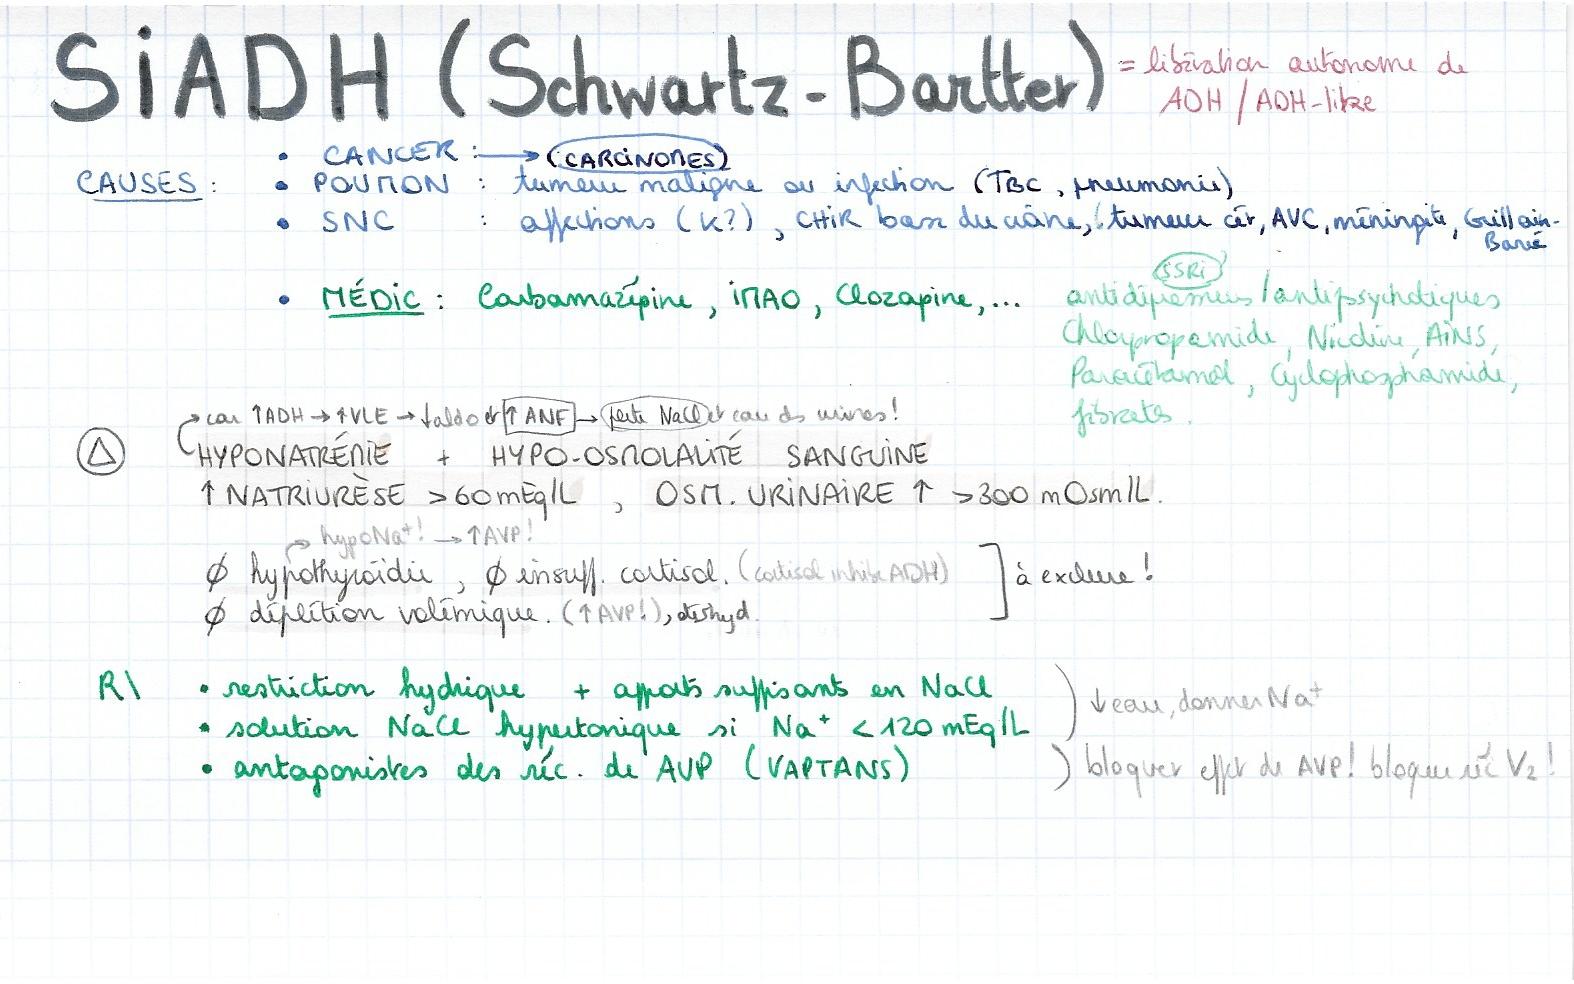 SiADH (Schwartz-Bartter) = libération autonome de
ADH / ADH-like
CAUSES :
• CANCER : → (CARCINOMES)
• POUMON : tumeur maligne ou infection (TBC, pneumonie)
• SNC : affections (K?), CHIR base du crâne, tumeur cér, AVC, méningite, Guillain-
Barré
• MÉDIC : Carbamazépine, iMAO, Clozapine,...
SSRi
antidépresseurs / antipsychotiques
Chlorpropamide, Nicotine, AiNS,
Paracétamol, Cyclophosphamide,
fibrates.
→ car ↑ADH → ↑VLE → ↓aldo et ↑ANF → perte NaCl et eau ds urines!
Δ HYPONATRÉMIE + HYPO-OSMOLALITÉ SANGUINE
↑ NATRIURÈSE > 60 mEq/L , OSM. URINAIRE ↑ > 300 mOsm/L.
→ hypoNa⁺! → ↑AVP!
∅ hypothyroïdie, ∅ insuff. cortisol. (cortisol inhibe ADH)
∅ déplétion volémique. (↑AVP!), déshyd.
à exclure!
R\ • restriction hydrique + apports suffisants en NaCl
• solution NaCl hypertonique si Na⁺ < 120 mEq/L
↓eau, donner Na⁺
• antagonistes des réc. de AVP (VAPTANS) ) bloquer effet de AVP! bloque réc V₂!